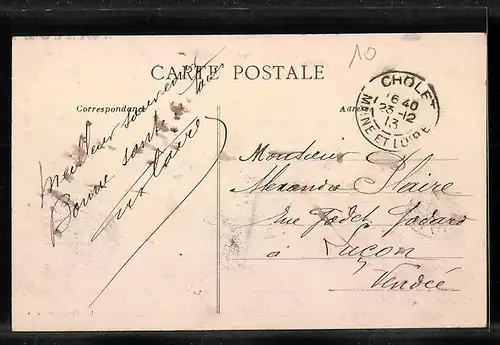 10
CARTE POSTALE
Correspondance
Adre
CHOLET
16 40
23-12
13
MAINE ET LOIRE
Meilleur souvenir
Bonne santé
Monsieur
Alexandre
Rue
à Luçon
Vendée